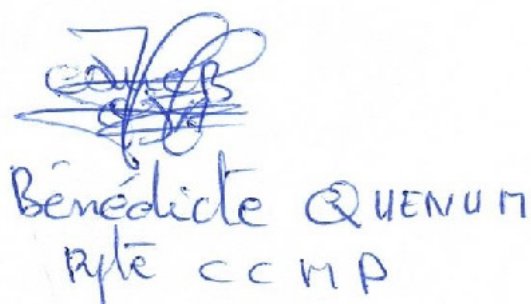 Bénédicte QUENUM
Rpte CCMP